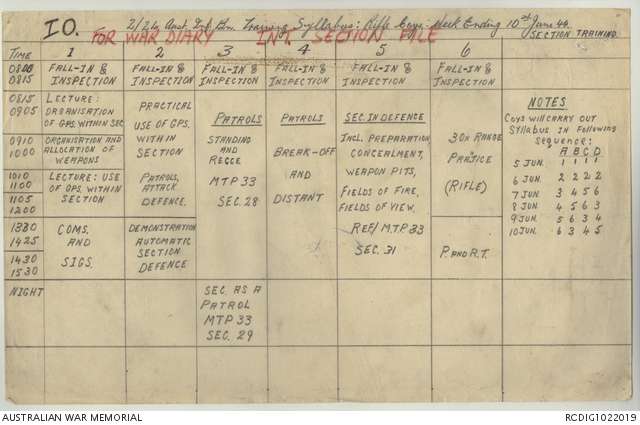 IO.
2/24 Aust. Inf. Bn. Training Syllabus: Rifle Coys: Week Ending 10th June 44.
FOR WAR DIARY INT. SECTION FILE
SECTION TRAINING.
TIME 1 2 3 4 5 6
0800
0815
FALL-IN &
INSPECTION
FALL-IN &
INSPECTION
FALL-IN &
INSPECTION
FALL-IN &
INSPECTION
FALL-IN &
INSPECTION
FALL-IN &
INSPECTION
0815
0905
LECTURE:
ORGANISATION
OF GPS. WITHIN SEC.
0910
1000
ORGANISATION AND
ALLOCATION OF
WEAPONS
1010
1100
1105
1200
LECTURE: USE
OF GPS. WITHIN
SECTION
PRACTICAL
USE OF GPS.
WITHIN
SECTION
PATROLS,
ATTACK.
DEFENCE.
PATROLS
STANDING
AND
RECCE
MTP 33
SEC. 28
PATROLS
BREAK-OFF
AND
DISTANT
SEC. IN DEFENCE
INCL. PREPARATION
CONCEALMENT,
WEAPON PITS,
FIELDS OF FIRE,
FIELDS OF VIEW.
REF/ M.T.P 33
SEC. 31
30X RANGE
PRACTICE
(RIFLE)
P. AND R.T.
1330
1425
1430
1530
COMS.
AND
SIGS.
DEMONSTRATION
AUTOMATIC
SECTION
DEFENCE
NIGHT
SEC. AS A
PATROL
MTP 33
SEC. 29
NOTES
COYS WILL CARRY OUT
SYLLABUS IN FOLLOWING
SEQUENCE:
A B C D
5 JUN. 1 1 1 1
6 JUN. 2 2 2 2
7 JUN. 3 4 5 6
8 JUN. 4 5 6 3
9 JUN. 5 6 3 4
10 JUN. 6 3 4 5
AUSTRALIAN WAR MEMORIAL
RCDIG1022019